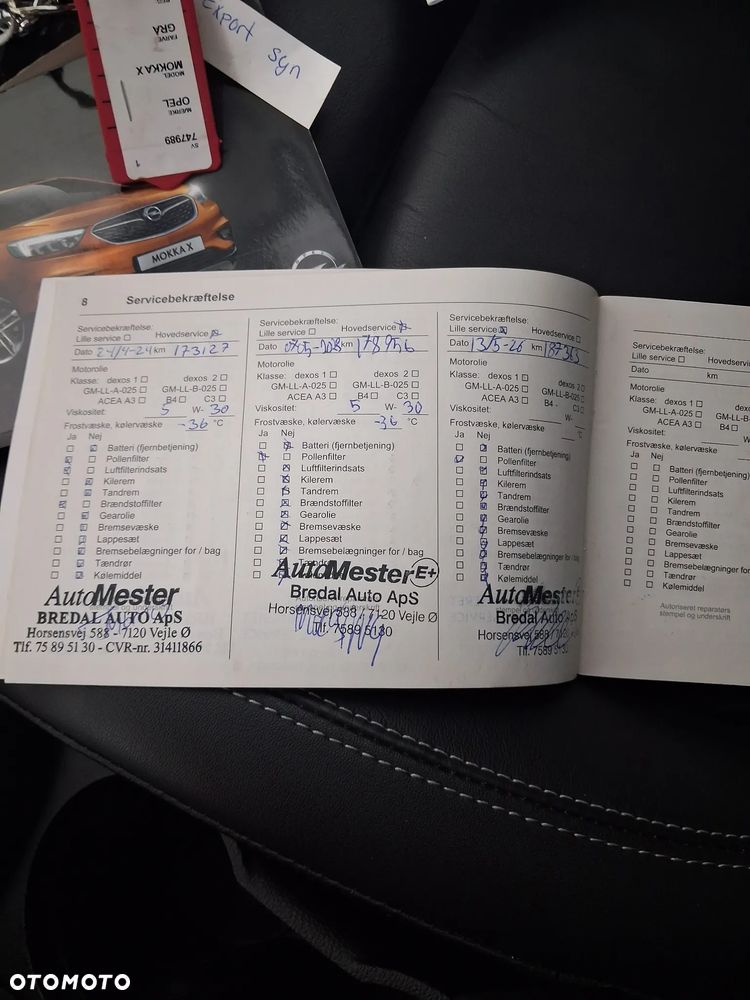 Export syn
REG.
FARVE
GRÅ
MODEL
MOKKA X
MÆRKE
OPEL
SV
747989
1
MOKKA X
8 Servicebekræftelse
Servicebekræftelse:
Lille service Hovedservice
Dato 24/4-24 km 173127
Motorolie
Klasse: dexos 1 dexos 2
GM-LL-A-025 GM-LL-B-025
ACEA A3 B4 C3
Viskositet: 5 W- 30
Frostvæske, kølervæske -36 °C
Ja Nej
Batteri (fjernbetjening)
Pollenfilter
Luftfilterindsats
Kilerem
Tandrem
Brændstoffilter
Gearolie
Bremsevæske
Lappesæt
Bremsebelægninger for / bag
Tændrør
Kølemiddel
AutoMester
BREDAL AUTO ApS
Horsensvej 588 - 7120 Vejle Ø
Tlf. 75 89 51 30 - CVR-nr. 31411866
Servicebekræftelse:
Lille service Hovedservice
Dato km 178956
Motorolie
Klasse: dexos 1 dexos 2
GM-LL-A-025 GM-LL-B-025
ACEA A3 B4 C3
Viskositet: 5 W- 30
Frostvæske, kølervæske -36 °C
Ja Nej
Batteri (fjernbetjening)
Pollenfilter
Luftfilterindsats
Kilerem
Tandrem
Brændstoffilter
Gearolie
Bremsevæske
Lappesæt
Bremsebelægninger for / bag
Tændrør
AutoMester E+
Bredal Auto ApS
Horsensvej 588 / 7120 Vejle Ø
Tlf. 7589 5130
Servicebekræftelse:
Lille service Hovedservice
Dato 13/5-26 km 187383
Motorolie
Klasse: dexos 1 dexos 2
GM-LL-A-025 GM-LL-B-025
ACEA A3 B4 - C3
Viskositet: W-
Frostvæske, kølervæske °C
Ja Nej
Batteri (fjernbetjening)
Pollenfilter
Luftfilterindsats
Kilerem
Tandrem
Brændstoffilter
Gearolie
Bremsevæske
Lappesæt
Bremsebelægninger for / bag
Tændrør
Kølemiddel
AutoMester
stempel og underskrift
Bredal Auto ApS
Horsensvej 588 / 7120
Tlf. 7589 5130
Servicebekræftelse:
Lille service Hovedservice
Dato km
Motorolie
Klasse: dexos 1
GM-LL-A-025
ACEA A3 B4
Viskositet:
Frostvæske, kølervæske
Ja Nej
Batteri (fjernbetjening)
Pollenfilter
Luftfilterindsats
Kilerem
Tandrem
Brændstoffilter
Gearolie
Bremsevæske
Lappesæt
Bremsebelægninger for
Tændrør
Kølemiddel
Autoriseret reparatørs
stempel og underskrift
OTOMOTO